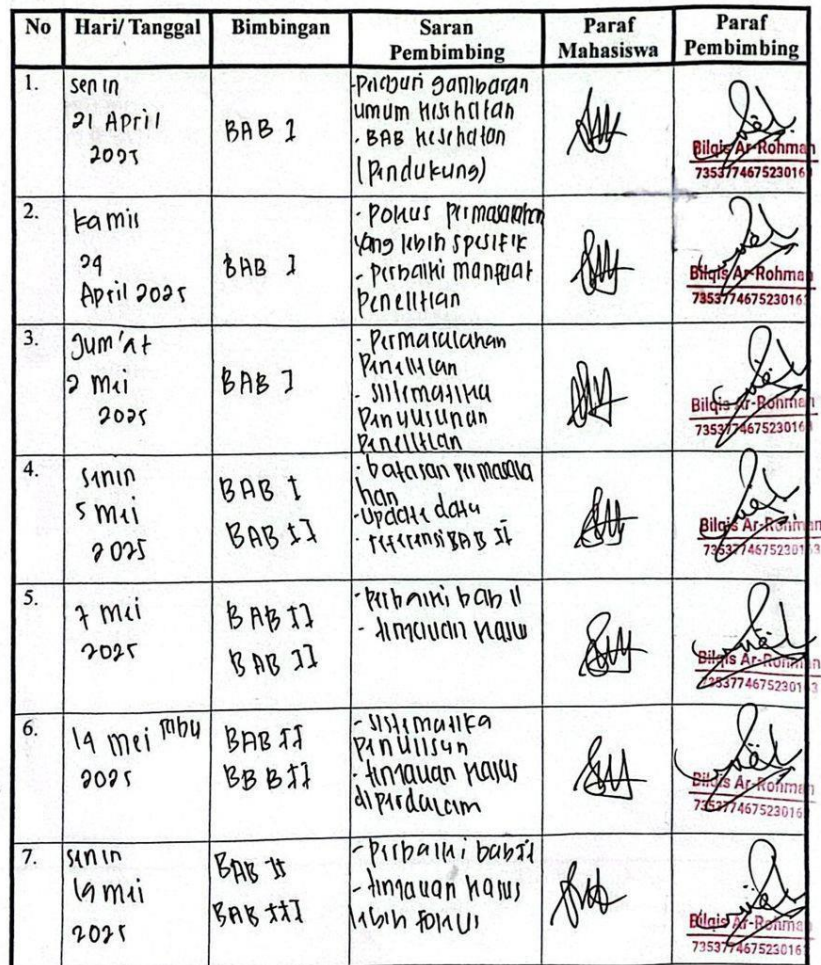 No Hari/ Tanggal Bimbingan Saran Pembimbing Paraf Mahasiswa Paraf Pembimbing
1.
senin
21 April
2025
BAB I
gambaran
umum kesehatan
- BAB kesehatan
(pendukung)
Bilqis Ar-Rohman
735377467523016
2.
kamis
24
April 2025
BAB I
- Pokus permasalahan
yang lebih spesifik
- perbaiki manpaat
penelitian
Bilqis Ar-Rohman
735377467523016
3.
Jum'at
2 mei
2025
BAB I
- Permasalahan
Penelitian
- sistematika
Penyusunan
Penelitian
Bilqis Ar-Rohman
735377467523016
4.
senin
5 mei
2025
BAB I
BAB II
- batasan permasala
han
- update data
- referensi BAB II
Bilqis Ar-Rohman
7353774675230163
5.
7 mei
2025
BAB II
BAB II
- perbaiki bab II
- tinjauan kasus
Bilqis Ar-Rohman
7353774675230163
6.
14 mei rabu
2025
BAB II
BB BII
- sistematika
penulisan
- tinjauan kasus
diperdalam
Bilqis Ar-Rohman
735377467523016
7.
senin
19 mei
2025
BAB II
BAB III
- perbaiki bab II
- tinjauan kasus
lebih fokus
Bilqis Ar-Rohman
735377467523016